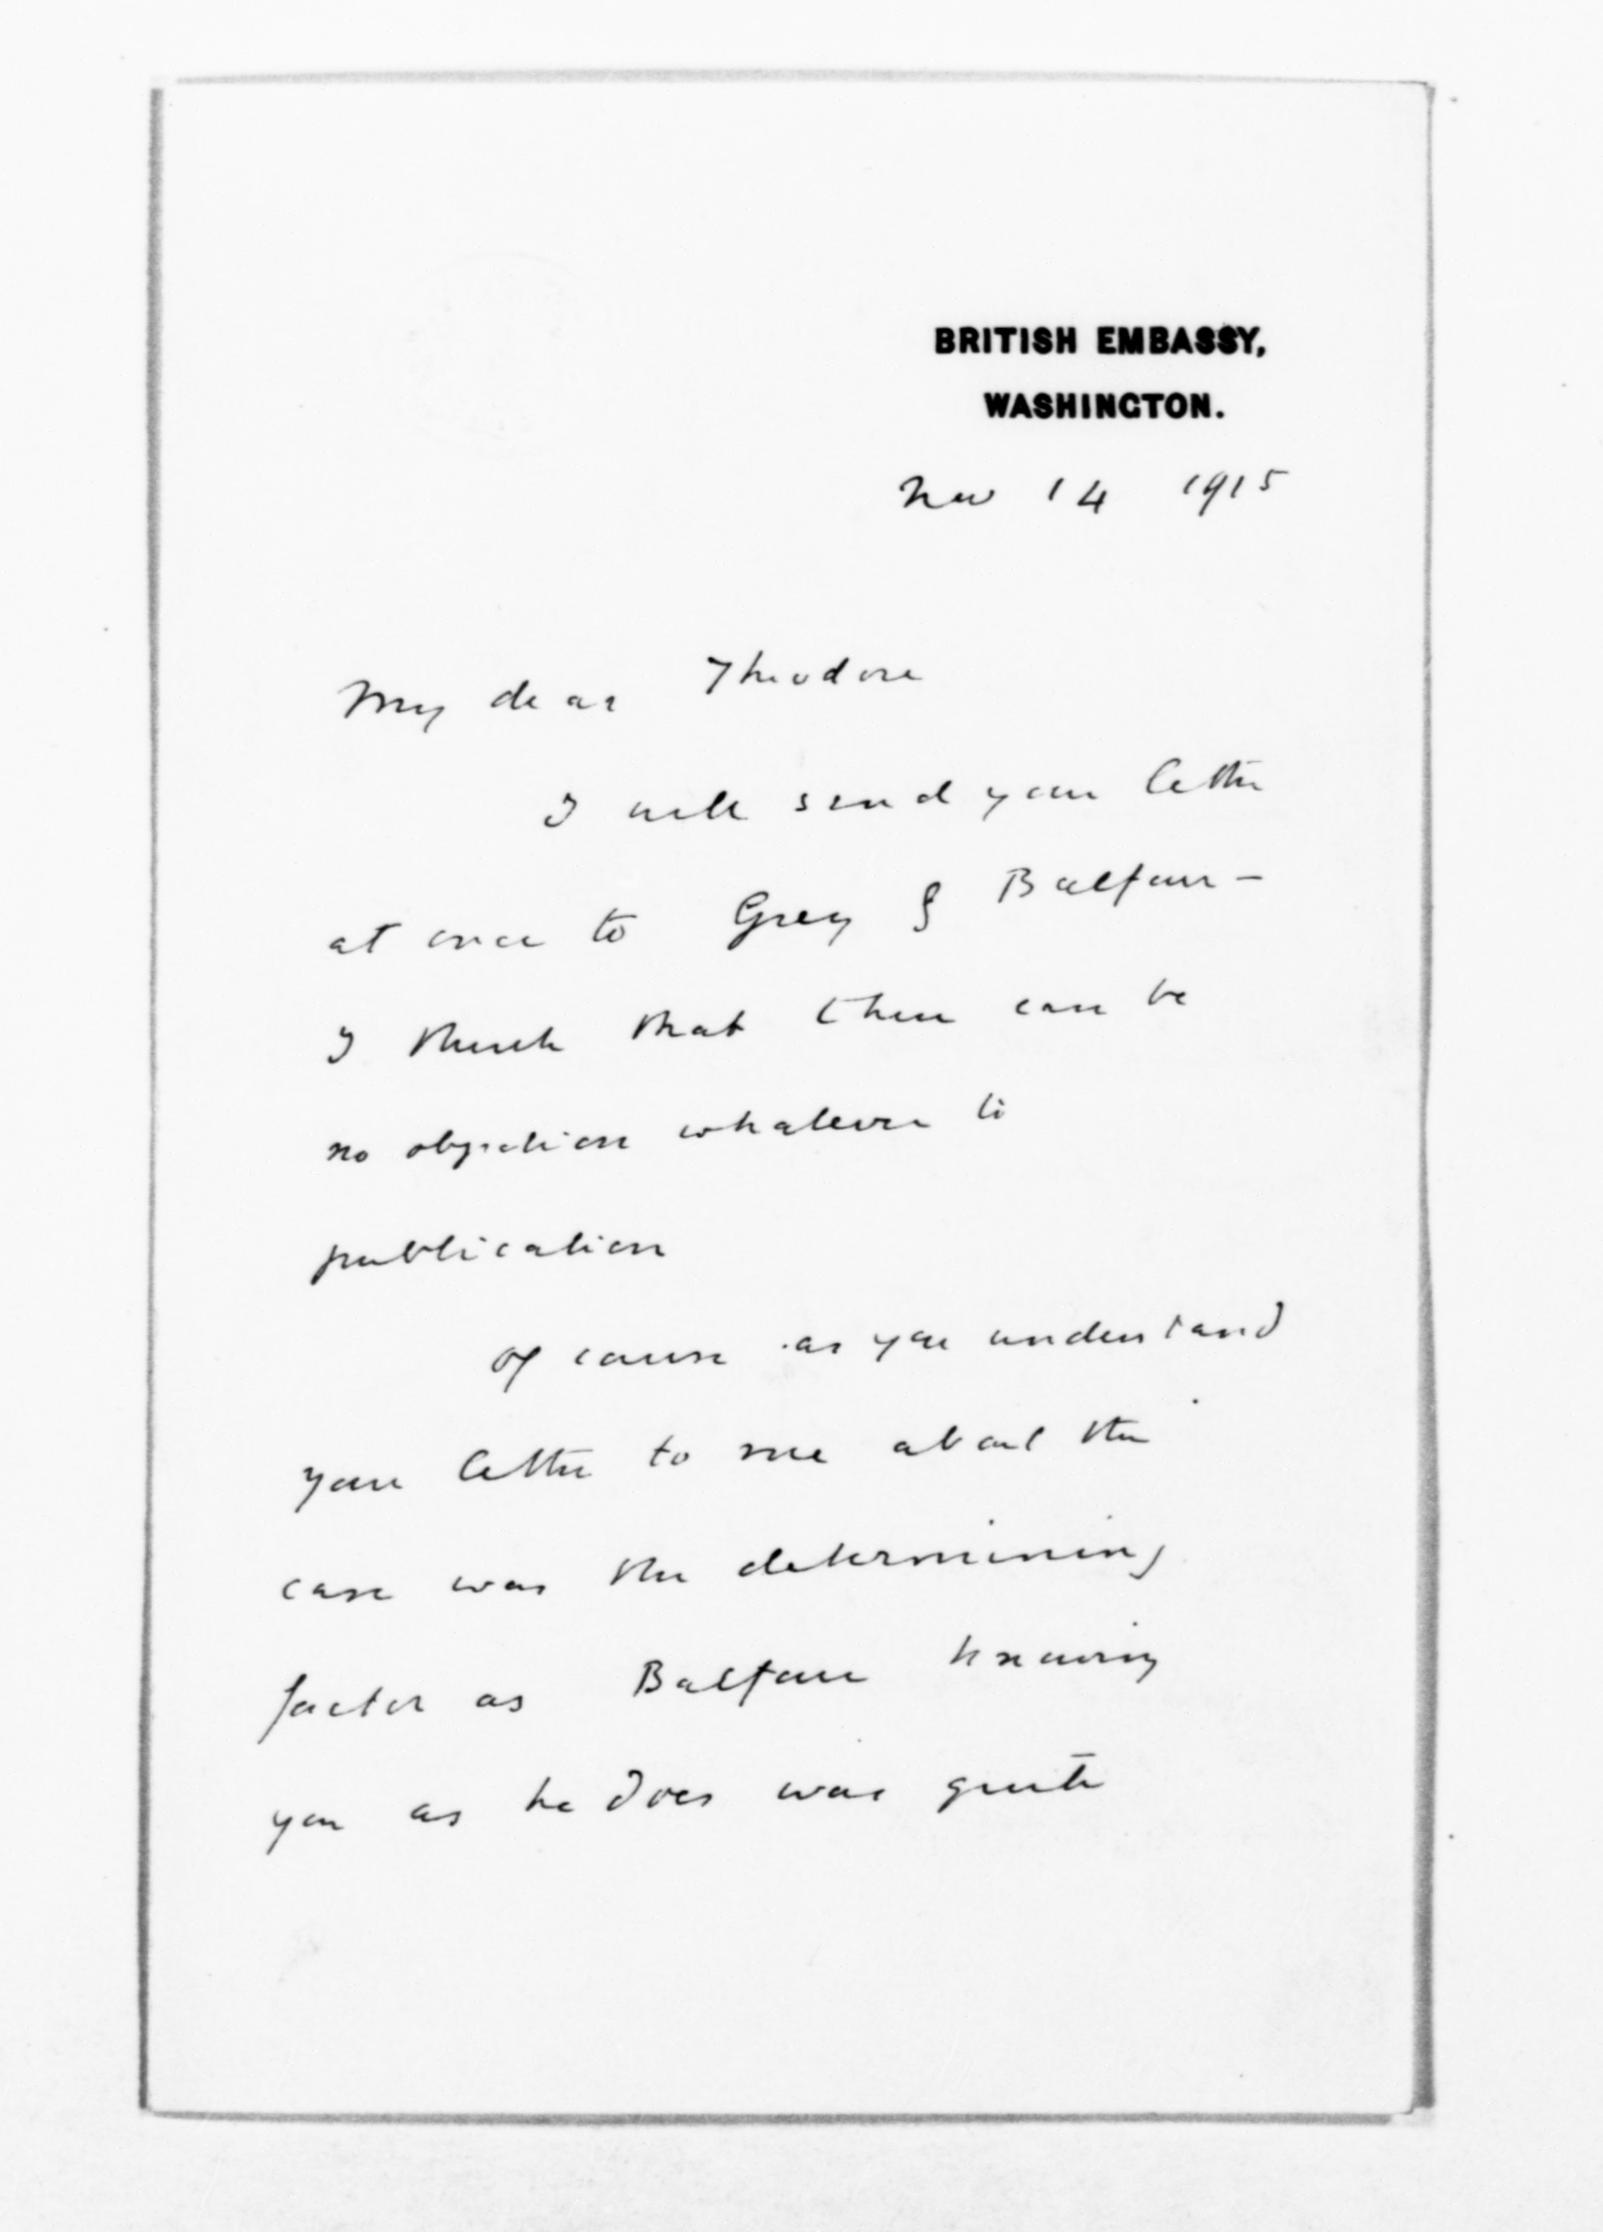 BRITISH EMBASSY,
WASHINGTON.
Nov 14 1915
My dear Theodore
I will send your letter
at once to Grey & Balfour –
I think that there can be
no objection whatever to
publication
Of course as you understand
your letter to me about the
case was the determining
factor as Balfour knowing
you as he does was quite